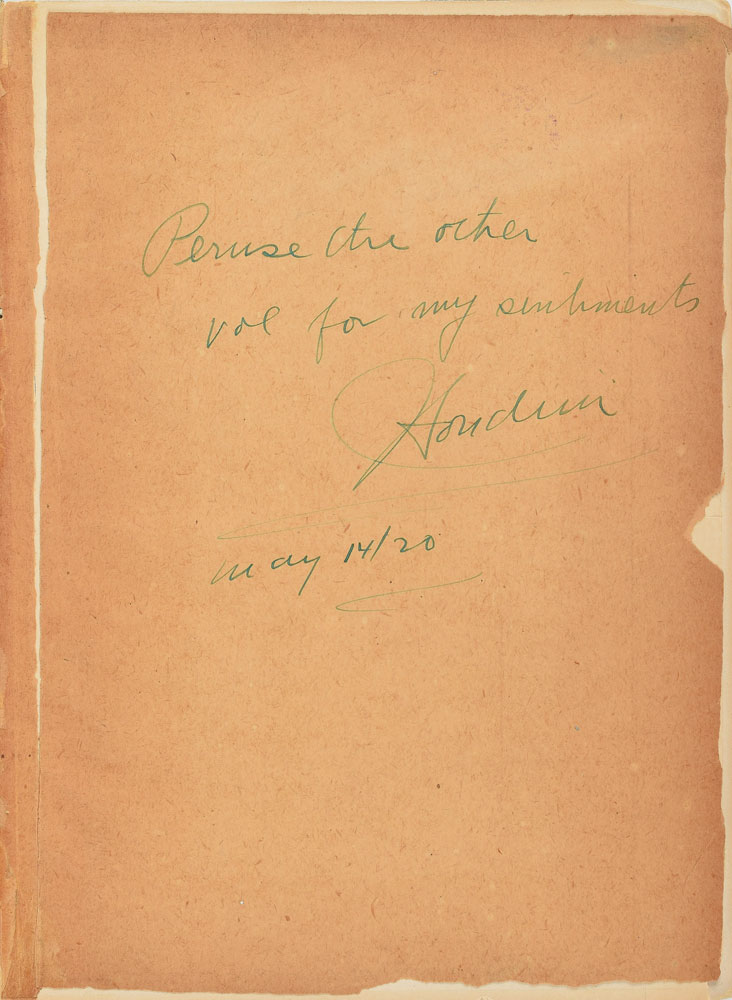 Peruse the other
vol for my sentiments
Houdini
May 14/20